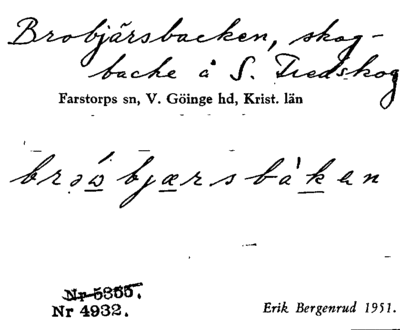 Brobjärsbacken, skog-
backe å S. Tredskog
Farstorps sn, V. Göinge hd, Krist. län
brówbjærsbàken
Nr 5355.
Nr 4932.
Erik Bergenrud 1951.